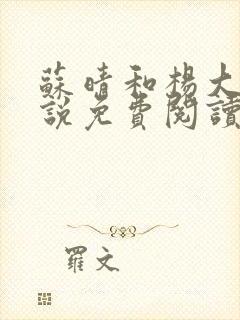 蘇晴和楊大
說免費閱讀
羅文